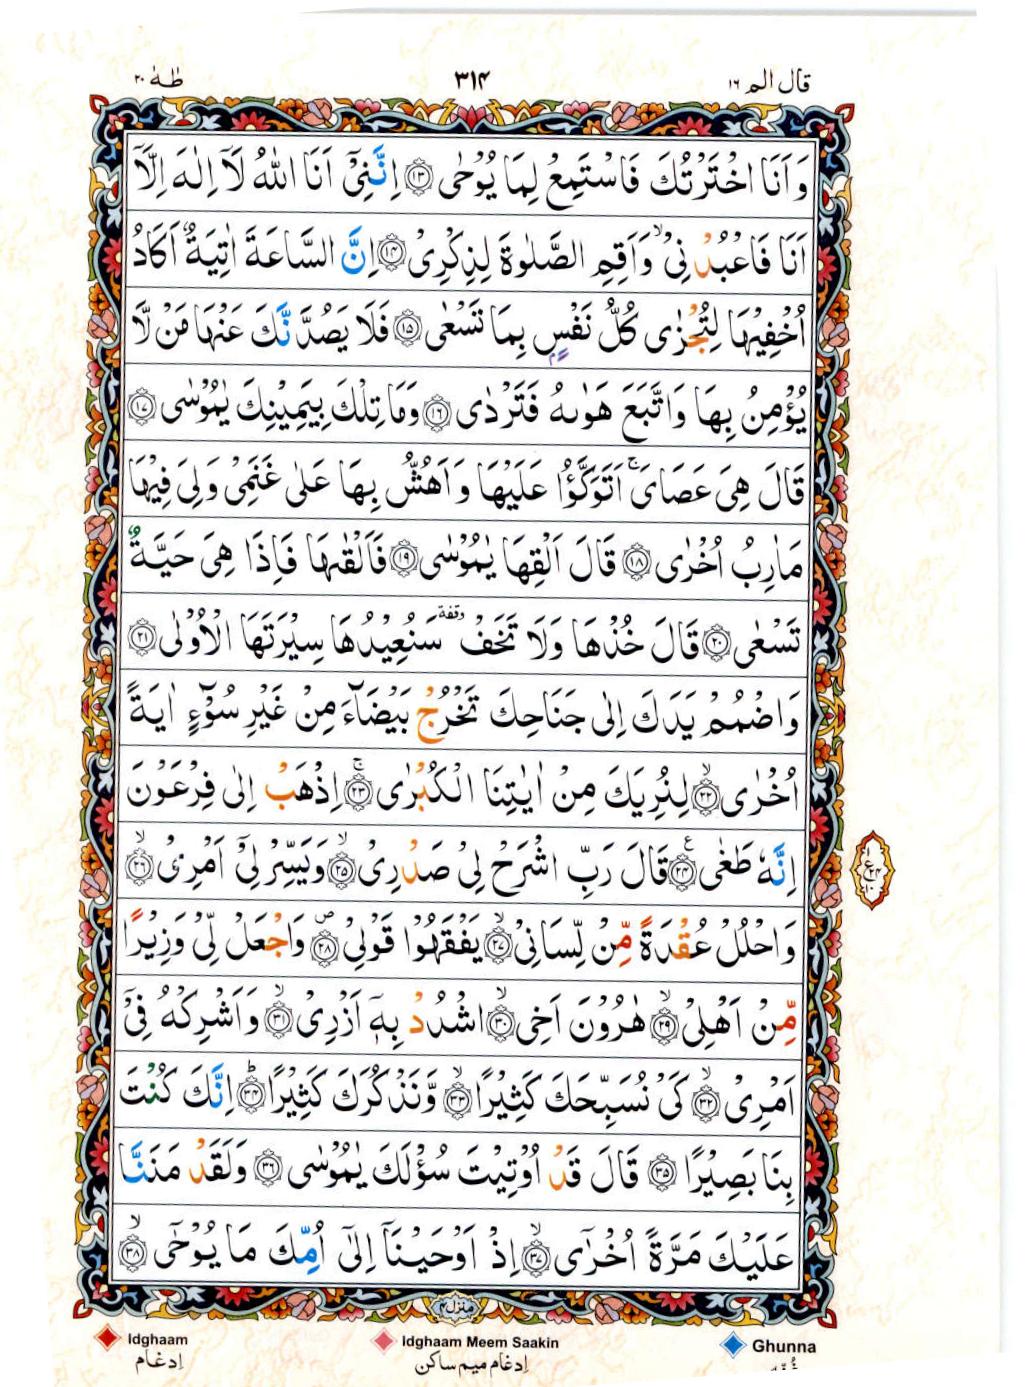 قال الم ۱۶ ۳۱۴ طٰهٰ ۲۰
وَاَنَا اخْتَرْتُكَ فَاسْتَمِعْ لِمَا يُوْحٰى ۝۱۳ اِنَّنِىْۤ اَنَا اللّٰهُ لَاۤ اِلٰهَ اِلَّاۤ
اَنَا فَاعْبُدْنِىْۙ وَاَقِمِ الصَّلٰوةَ لِذِكْرِىْ ۝۱۴ اِنَّ السَّاعَةَ اٰتِيَةٌ اَكَادُ
اُخْفِيْهَا لِتُجْزٰى كُلُّ نَفْسٍۢ بِمَا تَسْعٰى ۝۱۵ فَلَا يَصُدَّنَّكَ عَنْهَا مَنْ لَّا
يُؤْمِنُ بِهَا وَاتَّبَعَ هَوٰٮهُ فَتَرْدٰى ۝۱۶ وَمَا تِلْكَ بِيَمِيْنِكَ يٰمُوْسٰى ۝۱۷
قَالَ هِىَ عَصَاىَۚ اَتَوَكَّؤُا عَلَيْهَا وَاَهُشُّ بِهَا عَلٰى غَنَمِىْ وَلِىَ فِيْهَا
مَاٰرِبُ اُخْرٰى ۝۱۸ قَالَ اَلْقِهَا يٰمُوْسٰى ۝۱۹ فَاَلْقٰٮهَا فَاِذَا هِىَ حَيَّةٌ
تَسْعٰى ۝۲۰ قَالَ خُذْهَا وَلَا تَخَفْ وقفة سَنُعِيْدُهَا سِيْرَتَهَا الْاُوْلٰى ۝۲۱
وَاضْمُمْ يَدَكَ اِلٰى جَنَاحِكَ تَخْرُجْ بَيْضَآءَ مِنْ غَيْرِ سُوْٓءٍ اٰيَةً
اُخْرٰىۙ ۝۲۲ لِنُرِيَكَ مِنْ اٰيٰتِنَا الْكُبْرٰىۚ ۝۲۳ اِذْهَبْ اِلٰى فِرْعَوْنَ
اِنَّهٗ طَغٰى ۝۲۴ ع قَالَ رَبِّ اشْرَحْ لِىْ صَدْرِىْۙ ۝۲۵ وَيَسِّرْ لِىْۤ اَمْرِىْۙ ۝۲۶
وَاحْلُلْ عُقْدَةً مِّنْ لِّسَانِىْۙ ۝۲۷ يَفْقَهُوْا قَوْلِىْ ۝۲۸ وَاجْعَلْ لِّىْ وَزِيْرًا
مِّنْ اَهْلِىْۙ ۝۲۹ هٰرُوْنَ اَخِىْۙ ۝۳۰ اشْدُدْ بِهٖۤ اَزْرِىْۙ ۝۳۱ وَاَشْرِكْهُ فِىْۤ
اَمْرِىْۙ ۝۳۲ كَىْ نُسَبِّحَكَ كَثِيْرًاۙ ۝۳۳ وَّنَذْكُرَكَ كَثِيْرًاؕ ۝۳۴ اِنَّكَ كُنْتَ
بِنَا بَصِيْرًا ۝۳۵ قَالَ قَدْ اُوْتِيْتَ سُؤْلَكَ يٰمُوْسٰى ۝۳۶ وَلَقَدْ مَنَنَّا
عَلَيْكَ مَرَّةً اُخْرٰٓىۙ ۝۳۷ اِذْ اَوْحَيْنَاۤ اِلٰٓى اُمِّكَ مَا يُوْحٰٓىۙ ۝۳۸
منزل۴
Idghaam Idghaam Meem Saakin Ghunna
اِدغام اِدغام میم ساکن